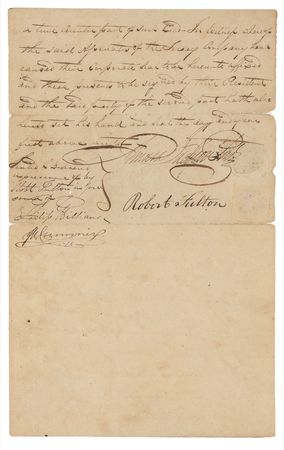 a true counterpart of said Deed — In witness whereof
the said Associates of the Jersey Company have
caused their Corporate Seal to be hereunto affixed
and these presents to be signed by their President
and the said party of the second part hath also
hereunto set his hand and seal the day and year
first above written
Sealed & Delivered
in presence of by
Robt Fulton
Robert Fulton
Williams